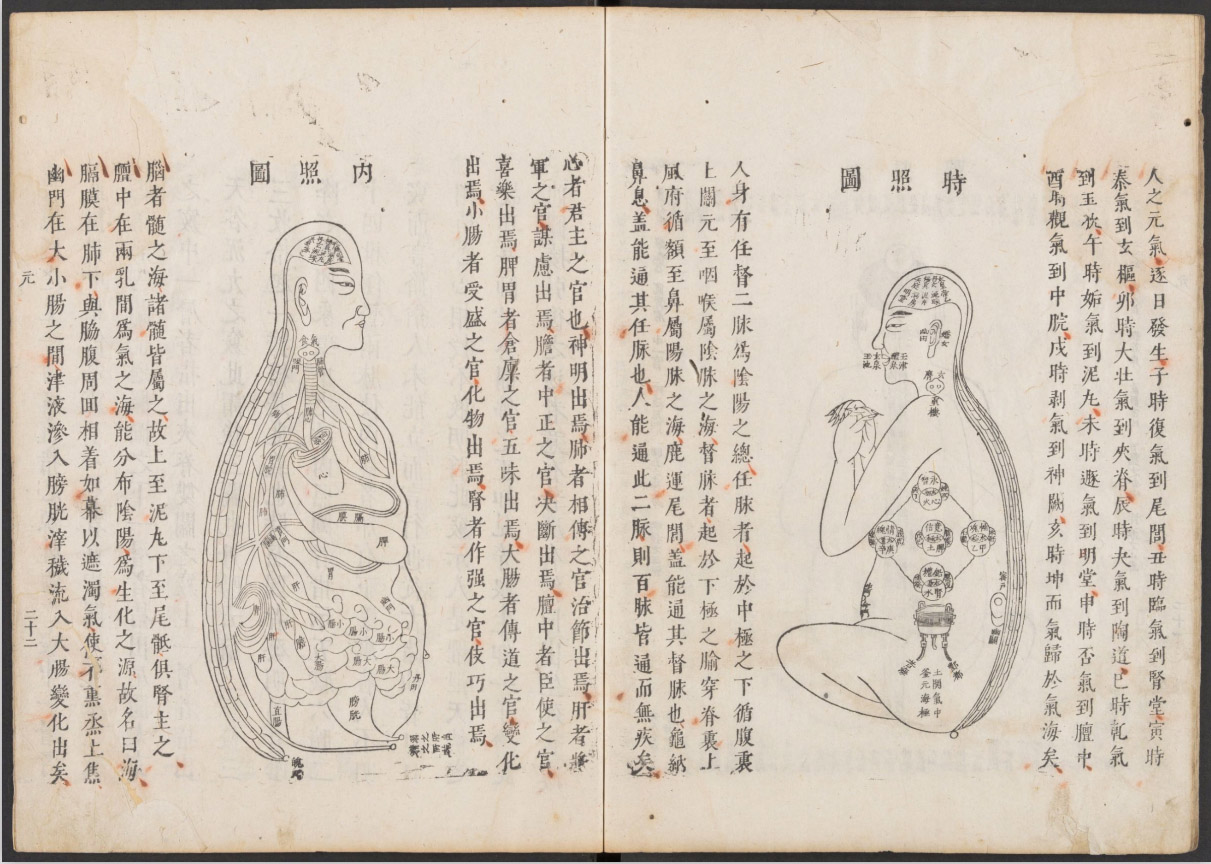 人之元氣逐日發生子時復氣到尾閭丑時臨氣到腎堂寅時
泰氣到玄樞夘時大壯氣到夾脊辰時夬氣到陶道巳時乾氣
到玉枕午時姤氣到泥丸未時遯氣到明堂申時否氣到膻中
酉時觀氣到中脘戌時剥氣到神闕亥時坤而氣歸於氣海矣
時照圖
玄膺
重樓
土閞氣中
釜元海極
人身有任督二脉爲陰陽之總任脉者起於中極之下循腹裏
上關元至咽喉屬陰脉之海督脉者起於下極之腧穿脊裏上
風府循額至鼻屬陽脉之海鹿運尾閭盖能通其督脉也龜納
鼻息盖能通其任脉也人能通此二脉則百脉皆通而無疾矣
心者君主之官也神明出焉肺者相傳之官治節出焉肝者將
軍之官謀慮出焉膽者中正之官決斷出焉膻中者臣使之官
喜樂出焉脾胃者倉廪之官五味出焉大腸者傳道之官變化
出焉小腸者受盛之官化物出焉腎者作强之官伎巧出焉
內照圖
肺
心
肺
膈膜
脾
胃
肝
小腸
小腸
大腸
大腸
膀胱
直腸
腦者髓之海諸髓皆屬之故上至泥丸下至尾骶俱腎主之
膻中在兩乳間爲氣之海能分布陰陽爲生化之源故名曰海
膈膜在肺下與脇腹周囬相着如幕以遮濁氣使不熏烝上焦
幽門在大小腸之間津液滲入膀胱滓穢流入大腸變化出矣
元
二十二